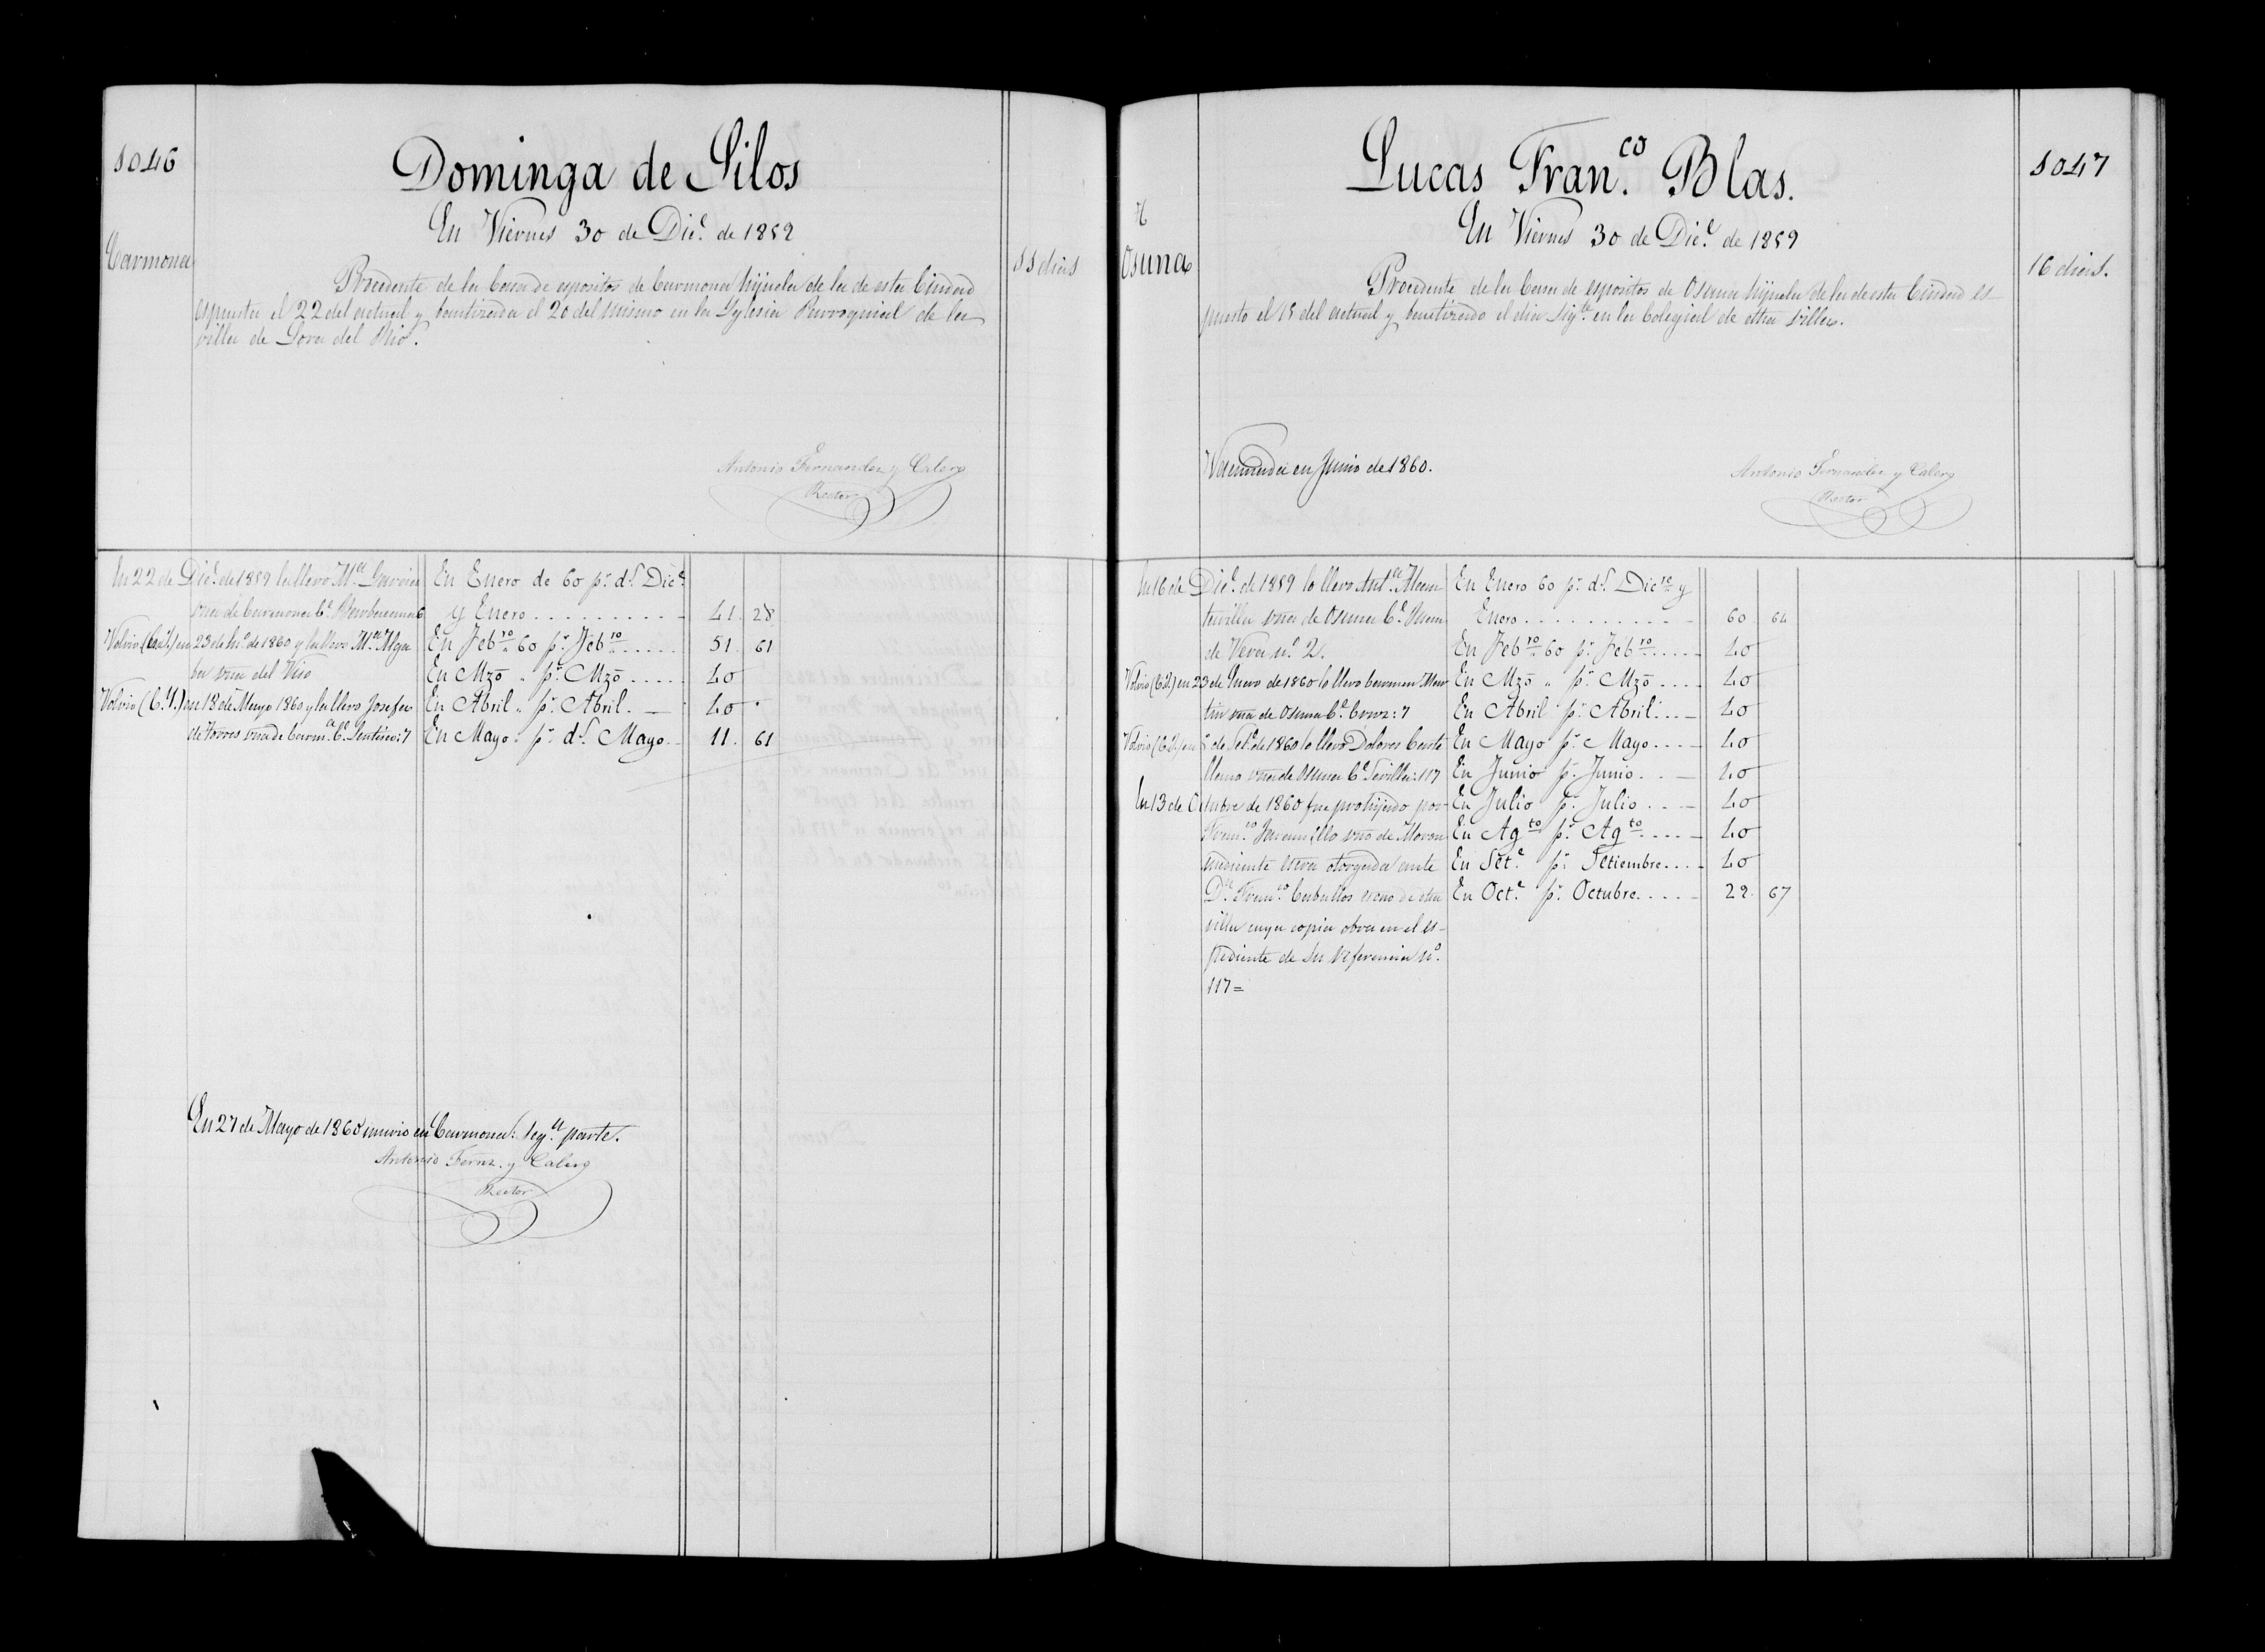 1046
Dominga de Silos
En Viernes 30 de Dic.e de 1859
Carmona
11 dias
Procedente de la Casa de espositos de Carmona hijuela de la de esta Ciudad
espuesta el 22 del actual y bautizada el 20 del mismo en la Yglesia Parroquial de la
villa de Lora del Rio.
Antonio Fernandez y Calero
Rector
En 22 de Dic.e de 1859 la llevo M.a Garcia
vna de Carmona C.e Barbacana 6
Volvio en 23 de En.o de 1860 y la llevo M.a
vna del Viso
Volvio en 18 de Mayo 1860 y la llevo Josefa
de Torres vna de Carm.a C.e Lentisco: 7
En Enero de 60 p.r d.s Dic.e
y Enero 41 28
En Feb.ro 60 p.r Feb.ro 51 61
En Mzo " p.r Mzo 40
En Abril " p.r Abril. 40
En Mayo " p.r d.s Mayo 11 61
En 27 de Mayo de 1860 murio en Carmona: seg.n parte.
Antonio Fernz. y Calero
Rector
Lucas Fran.co Blas.
1047
En Viernes 30 de Dic.e de 1859
H
Osuna
16 dias.
Procedente de la Casa de espositos de Osuna hijuela de la de esta Ciudad es-
puesto el 15 del actual y bautizado el dia sig.te en la Colegial de dha villa.
Vacunada en Junio de 1860.
Antonio Fernandez y Calero
Rector
En 16 de Dic.e de 1859 lo llevo Ant.a
vna de Osuna C.e
de Vera n.o 2.
Volvio (62) en 23 de Enero de 1860 lo llevo Carmen Mar
tin vna de Osuna C.e Cruz: 7
Volvio (62) en 5 de Set.e de 1860 lo llevo Dolores Caste
llano vna de Osuna C.e Sevilla: 117
En 13 de Octubre de 1860 fue prohijado por
Fran.co Jaramillo vno de Moron
mediante escra otorgada ante
D.n Fran.co Ceballos escno de dha
villa cuya copia obra en el es-
pediente de su referencia n.o
117=
En Enero 60 p.r d.s Dic.re y
Enero 60 64
En Feb.ro 60 p.r Feb.ro 40
En Mzo " p.r Mzo 40
En Abril p.r Abril 40
En Mayo p.r Mayo 40
En Junio p.r Junio 40
En Julio p.r Julio 40
En Ag.to p.r Ag.to 40
En Set.e p.r Setiembre 40
En Oct.e p.r Octubre 22 67